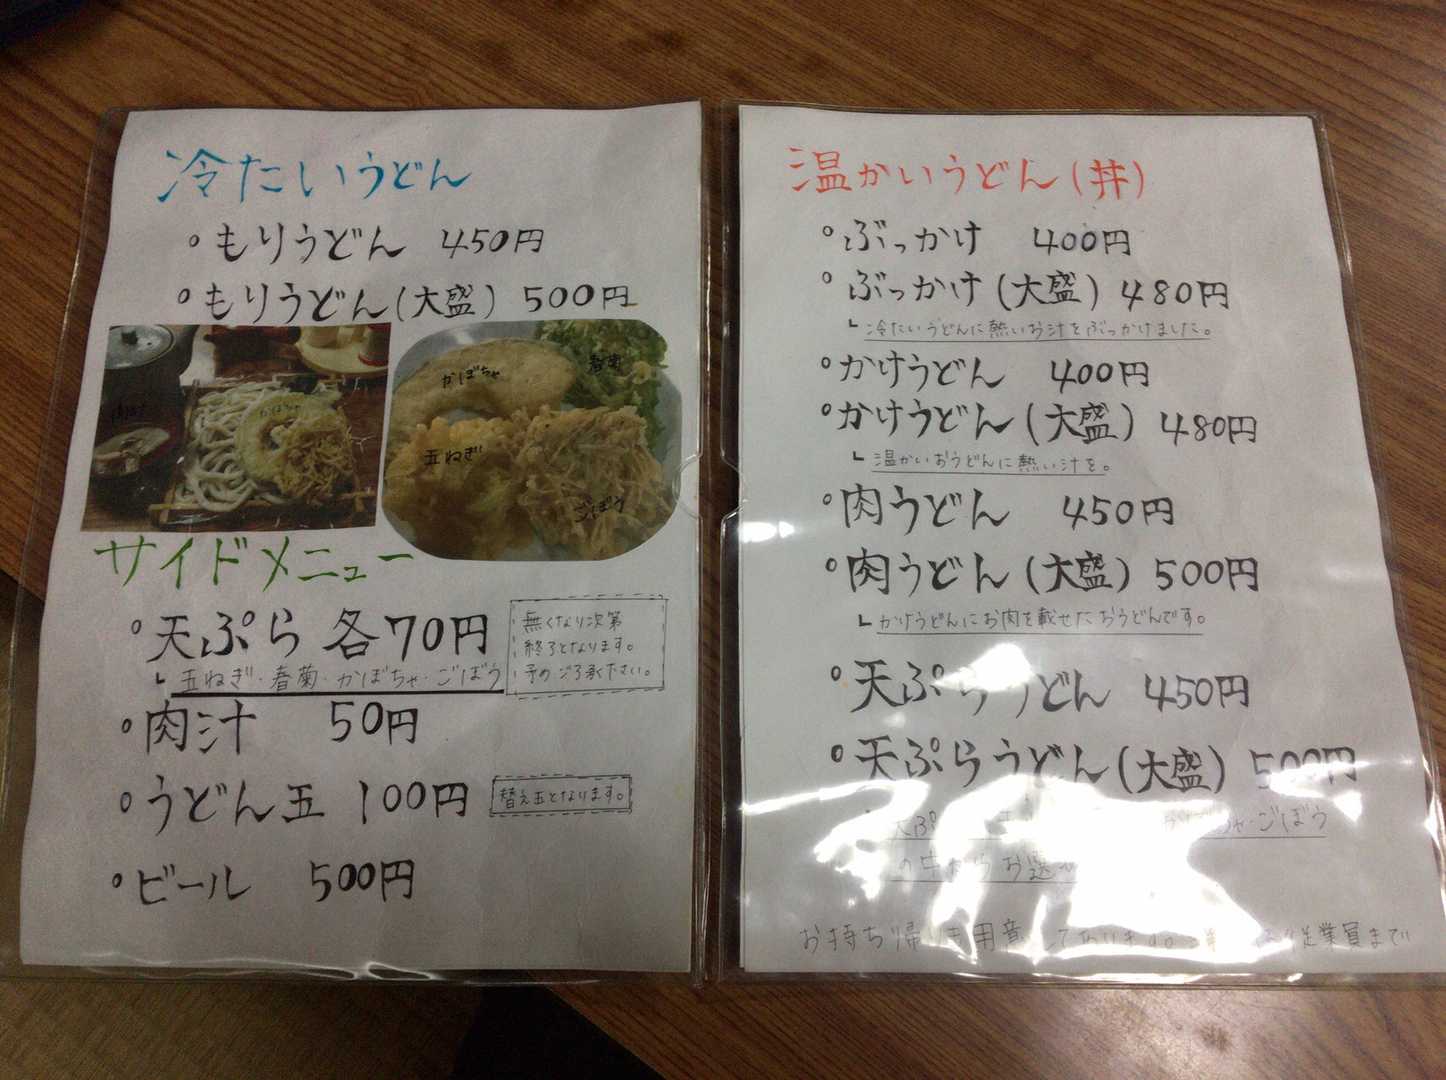 冷たいうどん
・もりうどん 450円
・もりうどん(大盛) 500円
かぼちゃ
かぼちゃ
春菊
玉ねぎ
ごぼう
サイドメニュー
・天ぷら 各70円
玉ねぎ・春菊・かぼちゃ・ごぼう
無くなり次第
終了となります。
予めご了承ください。
・肉汁 50円
・うどん玉 100円
替え玉となります。
・ビール 500円
温かいうどん(丼)
・ぶっかけ 400円
・ぶっかけ(大盛) 480円
冷たいうどんに熱いお汁をぶっかけました。
・かけうどん 400円
・かけうどん(大盛) 480円
温かいおうどんに熱い汁を。
・肉うどん 450円
・肉うどん(大盛) 500円
かけうどんにお肉を載せたおうどんです。
・天ぷらうどん 450円
・天ぷらうどん(大盛) 500円
天ぷ ちゃ・ごぼう
の中からお選
お持ち帰りも用意しております。 従業員まで